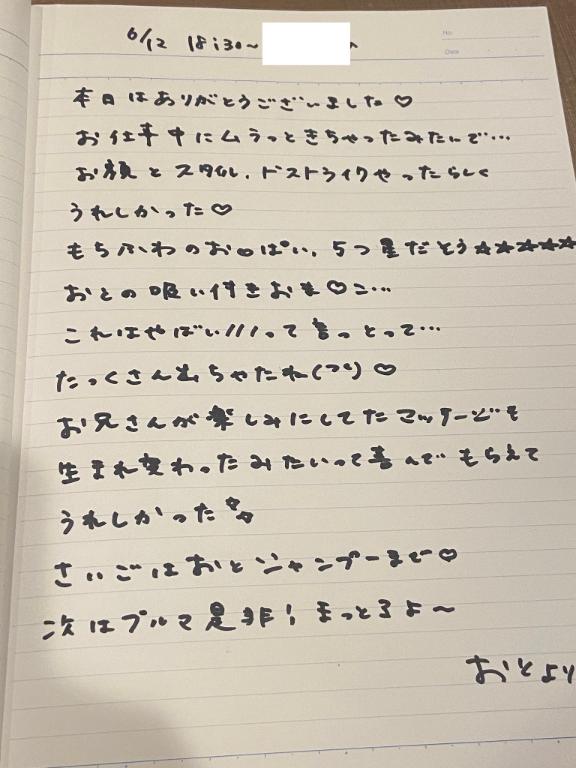 6/12 18:30~
No.
Date
本日はありがとうございました♡
お仕事中にムラっときちゃったみたいで…
お顔とスタイル、ドストライクやったらしく
うれしかった♡
もちふわのおっぱい、5つ星だとう☆☆☆☆☆
おとの吸い付きおま♡こ…
これはやばい///って言っとって…
たっくさん出ちゃたね(^^)♡
お兄さんが楽しみにしてたマッサージも
生まれ変わったみたいって喜んでもらえて
うれしかった
さいごはおとシャンプーまで♡
次はブルマ是非!まっとるよ~
おとより